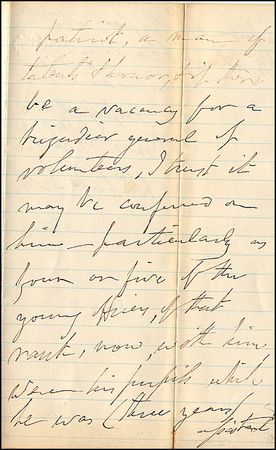 patriot, a man of
talents & honor, & if there
be a vacancy for a
brigadier general of
volunteers, I trust it
may be conferred on
him — particularly as
four or five of the
young of that
rank, now, with him,
were his pupils while
he was (three years)
assistant